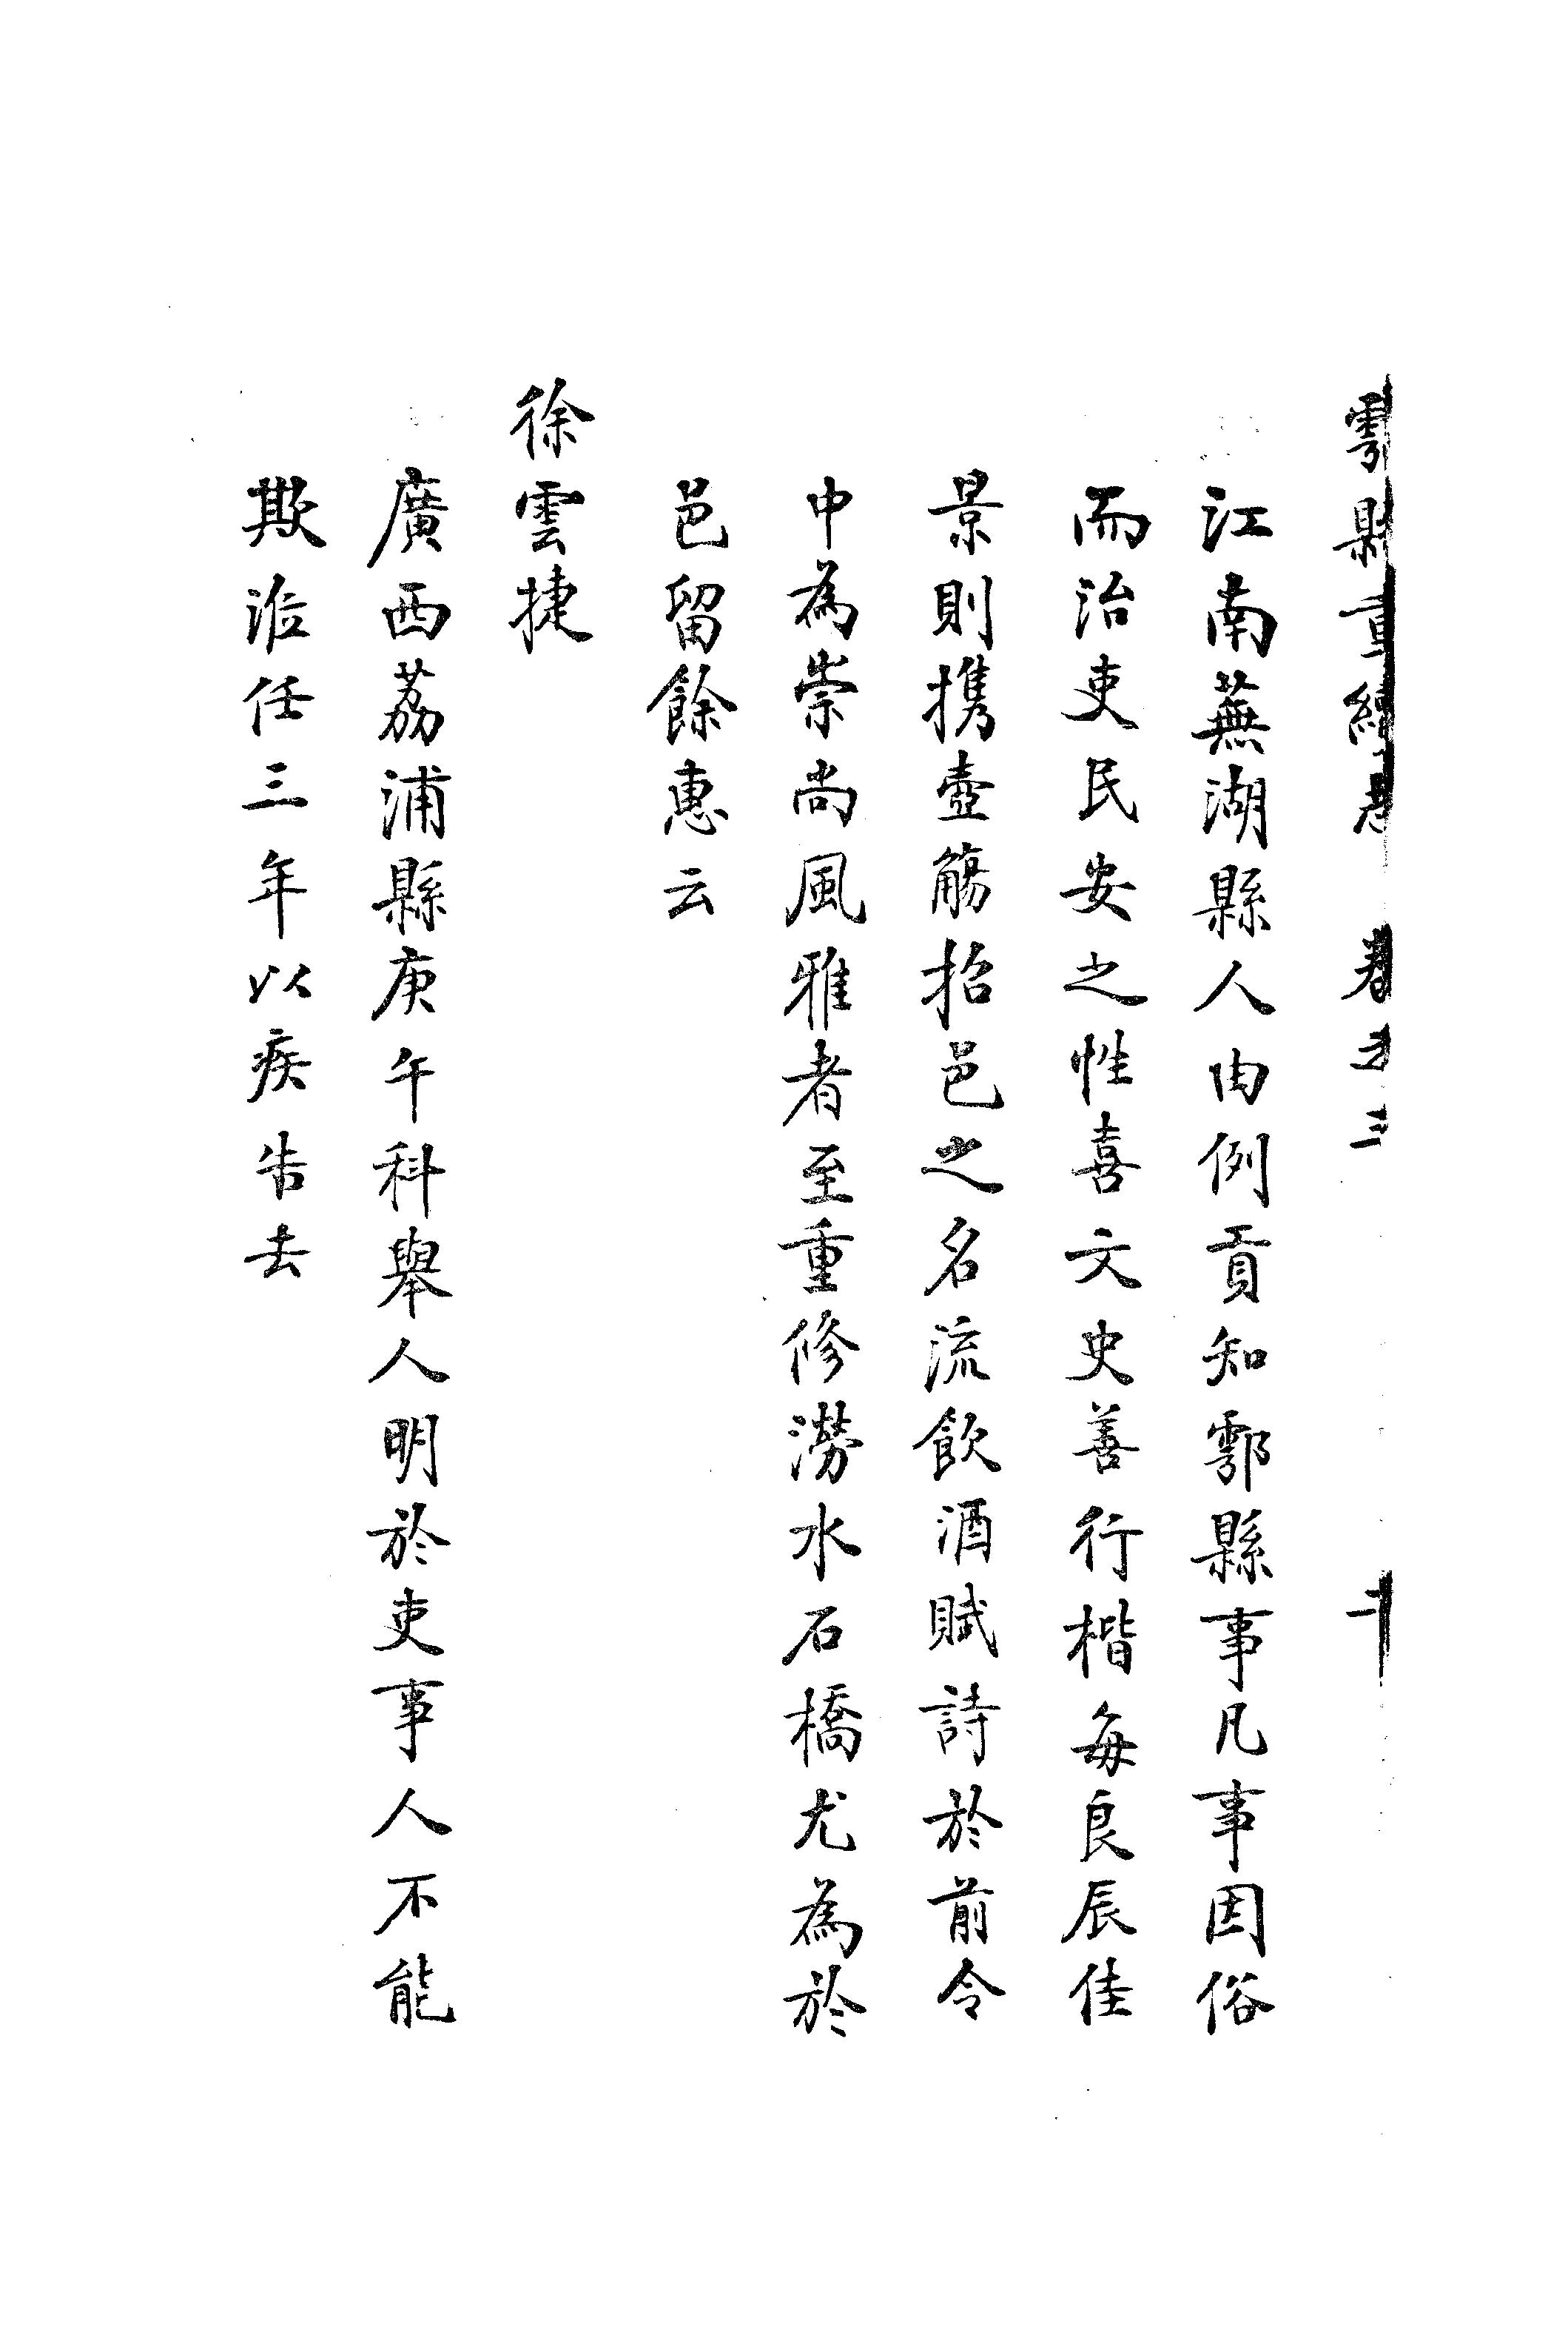 鄠縣重續志 卷之三 二十
江南蕪湖縣人由例貢知鄠縣事凡事因俗
而治吏民安之性喜文史善行楷每良辰佳
景則携壺觴招邑之名流飲酒賦詩於前令
中為崇尚風雅者至重修澇水石橋尤為於
邑留餘惠云
徐雲捷
廣西荔浦縣庚午科舉人明於吏事人不能
欺涖任三年以疾告去